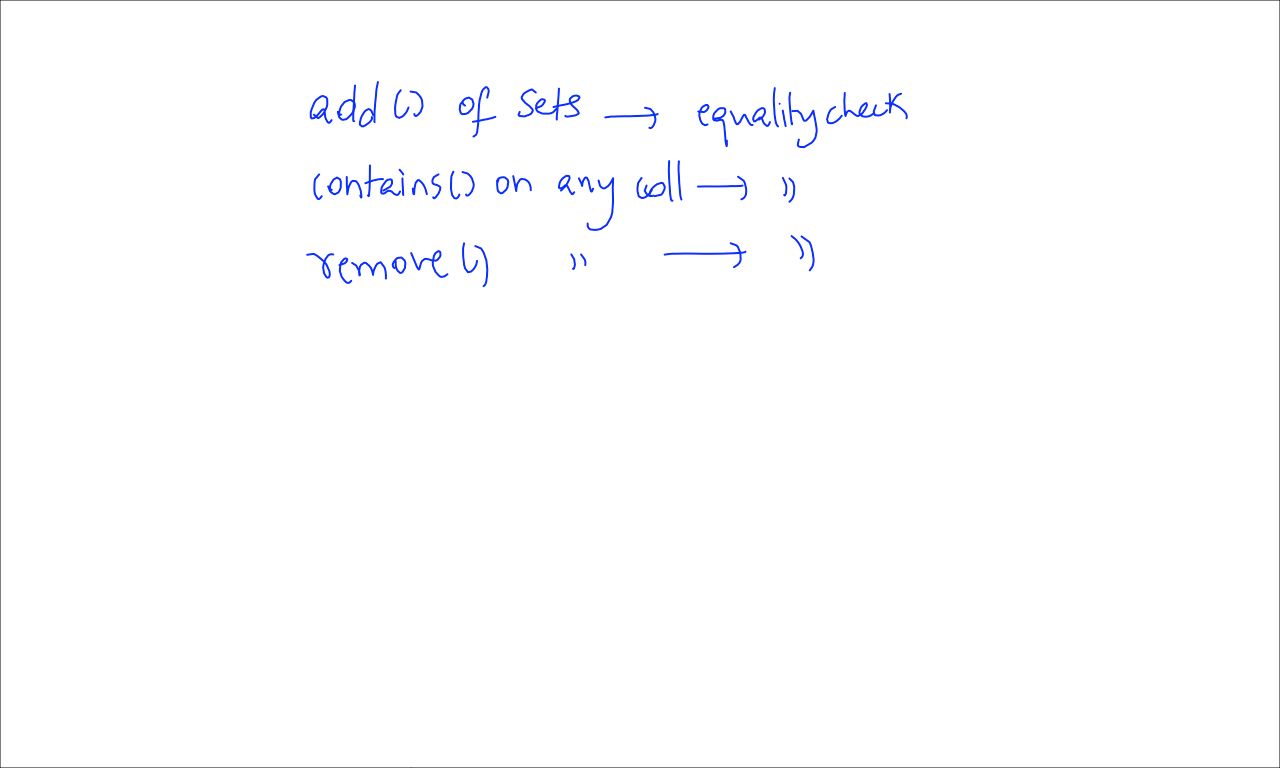 add() of Sets → equality check
contains() on any coll → "
remove() " → "